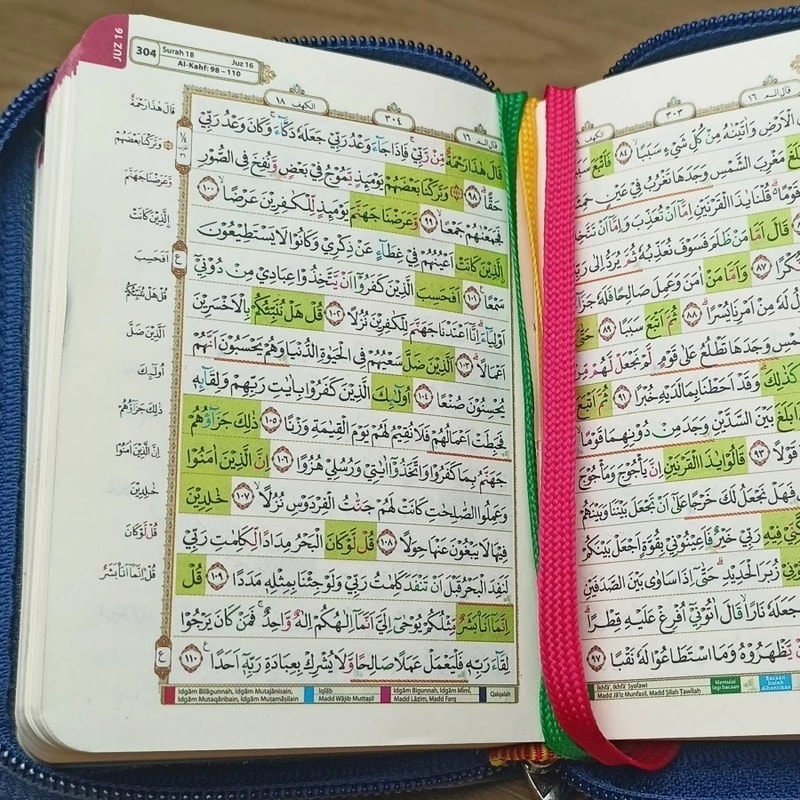 JUZ 16
304 Surah 18 Juz 16
Al-Kahf: 98 – 110
قال الم ١٦
٣٠٤
الكهف ١٨
قَالَ هٰذَا رَحْمَةٌ مِّنْ رَّبِّيْۚ فَاِذَا جَاۤءَ وَعْدُ رَبِّيْ جَعَلَهٗ دَكَّاۤءَۚ وَكَانَ وَعْدُ رَبِّيْ
حَقًّاۗ ٩٨ وَتَرَكْنَا بَعْضَهُمْ يَوْمَىِٕذٍ يَّمُوْجُ فِيْ بَعْضٍ وَّنُفِخَ فِى الصُّوْرِ
فَجَمَعْنٰهُمْ جَمْعًاۙ ٩٩ وَّعَرَضْنَا جَهَنَّمَ يَوْمَىِٕذٍ لِّلْكٰفِرِيْنَ عَرْضًاۙ ١٠٠
ۨالَّذِيْنَ كَانَتْ اَعْيُنُهُمْ فِيْ غِطَاۤءٍ عَنْ ذِكْرِيْ وَكَانُوْا لَا يَسْتَطِيْعُوْنَ
سَمْعًا ١٠١ اَفَحَسِبَ الَّذِيْنَ كَفَرُوْٓا اَنْ يَّتَّخِذُوْا عِبَادِيْ مِنْ دُوْنِيْٓ
اَوْلِيَاۤءَۗ اِنَّآ اَعْتَدْنَا جَهَنَّمَ لِلْكٰفِرِيْنَ نُزُلًا ١٠٢ قُلْ هَلْ نُنَبِّئُكُمْ بِالْاَخْسَرِيْنَ
اَعْمَالًاۗ ١٠٣ اَلَّذِيْنَ ضَلَّ سَعْيُهُمْ فِى الْحَيٰوةِ الدُّنْيَا وَهُمْ يَحْسَبُوْنَ اَنَّهُمْ
يُحْسِنُوْنَ صُنْعًا ١٠٤ اُولٰۤىِٕكَ الَّذِيْنَ كَفَرُوْا بِاٰيٰتِ رَبِّهِمْ وَلِقَاۤىِٕهٖ
فَحَبِطَتْ اَعْمَالُهُمْ فَلَا نُقِيْمُ لَهُمْ يَوْمَ الْقِيٰمَةِ وَزْنًا ١٠٥ ذٰلِكَ جَزَاۤؤُهُمْ
جَهَنَّمُ بِمَا كَفَرُوْا وَاتَّخَذُوْٓا اٰيٰتِيْ وَرُسُلِيْ هُزُوًا ١٠٦ اِنَّ الَّذِيْنَ اٰمَنُوْا
وَعَمِلُوا الصّٰلِحٰتِ كَانَتْ لَهُمْ جَنّٰتُ الْفِرْدَوْسِ نُزُلًاۙ ١٠٧ خٰلِدِيْنَ
فِيْهَا لَا يَبْغُوْنَ عَنْهَا حِوَلًا ١٠٨ قُلْ لَّوْ كَانَ الْبَحْرُ مِدَادًا لِّكَلِمٰتِ رَبِّيْ
لَنَفِدَ الْبَحْرُ قَبْلَ اَنْ تَنْفَدَ كَلِمٰتُ رَبِّيْ وَلَوْ جِئْنَا بِمِثْلِهٖ مَدَدًا ١٠٩ قُلْ
اِنَّمَآ اَنَا۠ بَشَرٌ مِّثْلُكُمْ يُوْحٰٓى اِلَيَّ اَنَّمَآ اِلٰهُكُمْ اِلٰهٌ وَّاحِدٌۚ فَمَنْ كَانَ يَرْجُوْا
لِقَاۤءَ رَبِّهٖ فَلْيَعْمَلْ عَمَلًا صَالِحًا وَّلَا يُشْرِكْ بِعِبَادَةِ رَبِّهٖٓ اَحَدًا ࣖ ١١٠
قَالَ هٰذَا رَحْمَةٌ
وَتَرَكْنَا بَعْضَهُمْ
وَعَرَضْنَا جَهَنَّمَ
الَّذِيْنَ كَانَتْ
اَفَحَسِبَ
قُلْ هَلْ نُنَبِّئُكُمْ
اَلَّذِيْنَ ضَلَّ
اُولٰۤىِٕكَ
ذٰلِكَ جَزَاۤؤُهُمْ
اِنَّ الَّذِيْنَ اٰمَنُوْا
خٰلِدِيْنَ
قُلْ لَّوْ كَانَ
قُلْ اِنَّمَآ اَنَا۠ بَشَرٌ
Idgām Bilāgunnah, Idgām Mutajānisain,
Idgām Mutaqāribain, Idgām Mutamāṡilain
Iqlāb
Madd Wājib Muttaṣil
Idgām Bigunnah, Idgām Mīmī,
Madd Lāzim, Madd Farq
Qalqalah
قال الم ١٦
٣٠٣
الْاَرْضِ وَاٰتَيْنٰهُ مِنْ كُلِّ شَيْءٍ سَبَبًا ٨٤ فَاَتْبَعَ
مَغْرِبَ الشَّمْسِ وَجَدَهَا تَغْرُبُ فِيْ عَيْنٍ
قَوْمًا ۗ قُلْنَا يٰذَا الْقَرْنَيْنِ اِمَّآ اَنْ تُعَذِّبَ وَاِمَّآ اَنْ تَتَّخِذَ
قَالَ اَمَّا مَنْ ظَلَمَ فَسَوْفَ نُعَذِّبُهٗ ثُمَّ يُرَدُّ اِلٰى
نُّكْرًا ٨٧ وَاَمَّا مَنْ اٰمَنَ وَعَمِلَ صَالِحًا فَلَهٗ
لَهٗ مِنْ اَمْرِنَا يُسْرًا ٨٨ ثُمَّ اَتْبَعَ سَبَبًا ٨٩
وَجَدَهَا تَطْلُعُ عَلٰى قَوْمٍ لَّمْ نَجْعَلْ لَّهُمْ
كَذٰلِكَ وَقَدْ اَحَطْنَا بِمَا لَدَيْهِ خُبْرًا ٩١ ثُمَّ اَتْبَعَ
بَلَغَ بَيْنَ السَّدَّيْنِ وَجَدَ مِنْ دُوْنِهِمَا قَوْمًا
قَوْلًا ٩٣ قَالُوْا يٰذَا الْقَرْنَيْنِ اِنَّ يَأْجُوْجَ وَمَأْجُوْجَ
فَهَلْ نَجْعَلُ لَكَ خَرْجًا عَلٰٓى اَنْ تَجْعَلَ بَيْنَنَا وَبَيْنَهُمْ
مَكَّنِّيْ فِيْهِ رَبِّيْ خَيْرٌ فَاَعِيْنُوْنِيْ بِقُوَّةٍ اَجْعَلْ بَيْنَكُمْ
زُبَرَ الْحَدِيْدِۗ حَتّٰىٓ اِذَا سَاوٰى بَيْنَ الصَّدَفَيْنِ
جَعَلَهٗ نَارًاۙ قَالَ اٰتُوْنِيْٓ اُفْرِغْ عَلَيْهِ قِطْرًاۗ
يَّظْهَرُوْهُ وَمَا اسْتَطَاعُوْا لَهٗ نَقْبًا ٩٧
Ikhfā', Ikhfā' Syafawī
Madd Jā'iz Munfaṣil, Madd Ṣilah Ṭawīlah
Memulai
lagi bacaan
Bacaan
boleh
dihentikan